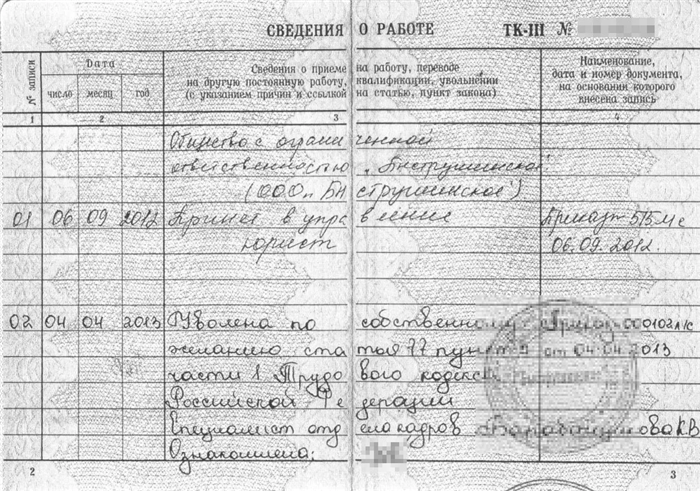 СВЕДЕНИЯ О РАБОТЕ ТК-III №
№ записи
Дата
число месяц год
Сведения о приеме на работу, переводе
на другую постоянную работу, квалификации, увольнении
(с указанием причин и ссылкой на статью, пункт закона)
Наименование,
дата и номер документа,
на основании которого
внесена запись
1 2 3 4
Общество с ограниченной
ответственностью
(ООО
01 06 09 2012 Принет в управление Приказ 515 л/с
юрист 06.09.2012.
02 04 04 2013 Уволена по собственному Приказ 000102л/с
желанию статья 77 пункт 3 от 04.04.2013
части 1 Трудового кодекса
Российской Федерации
Специалист отдела кадров
Ознакомлена:
2 3